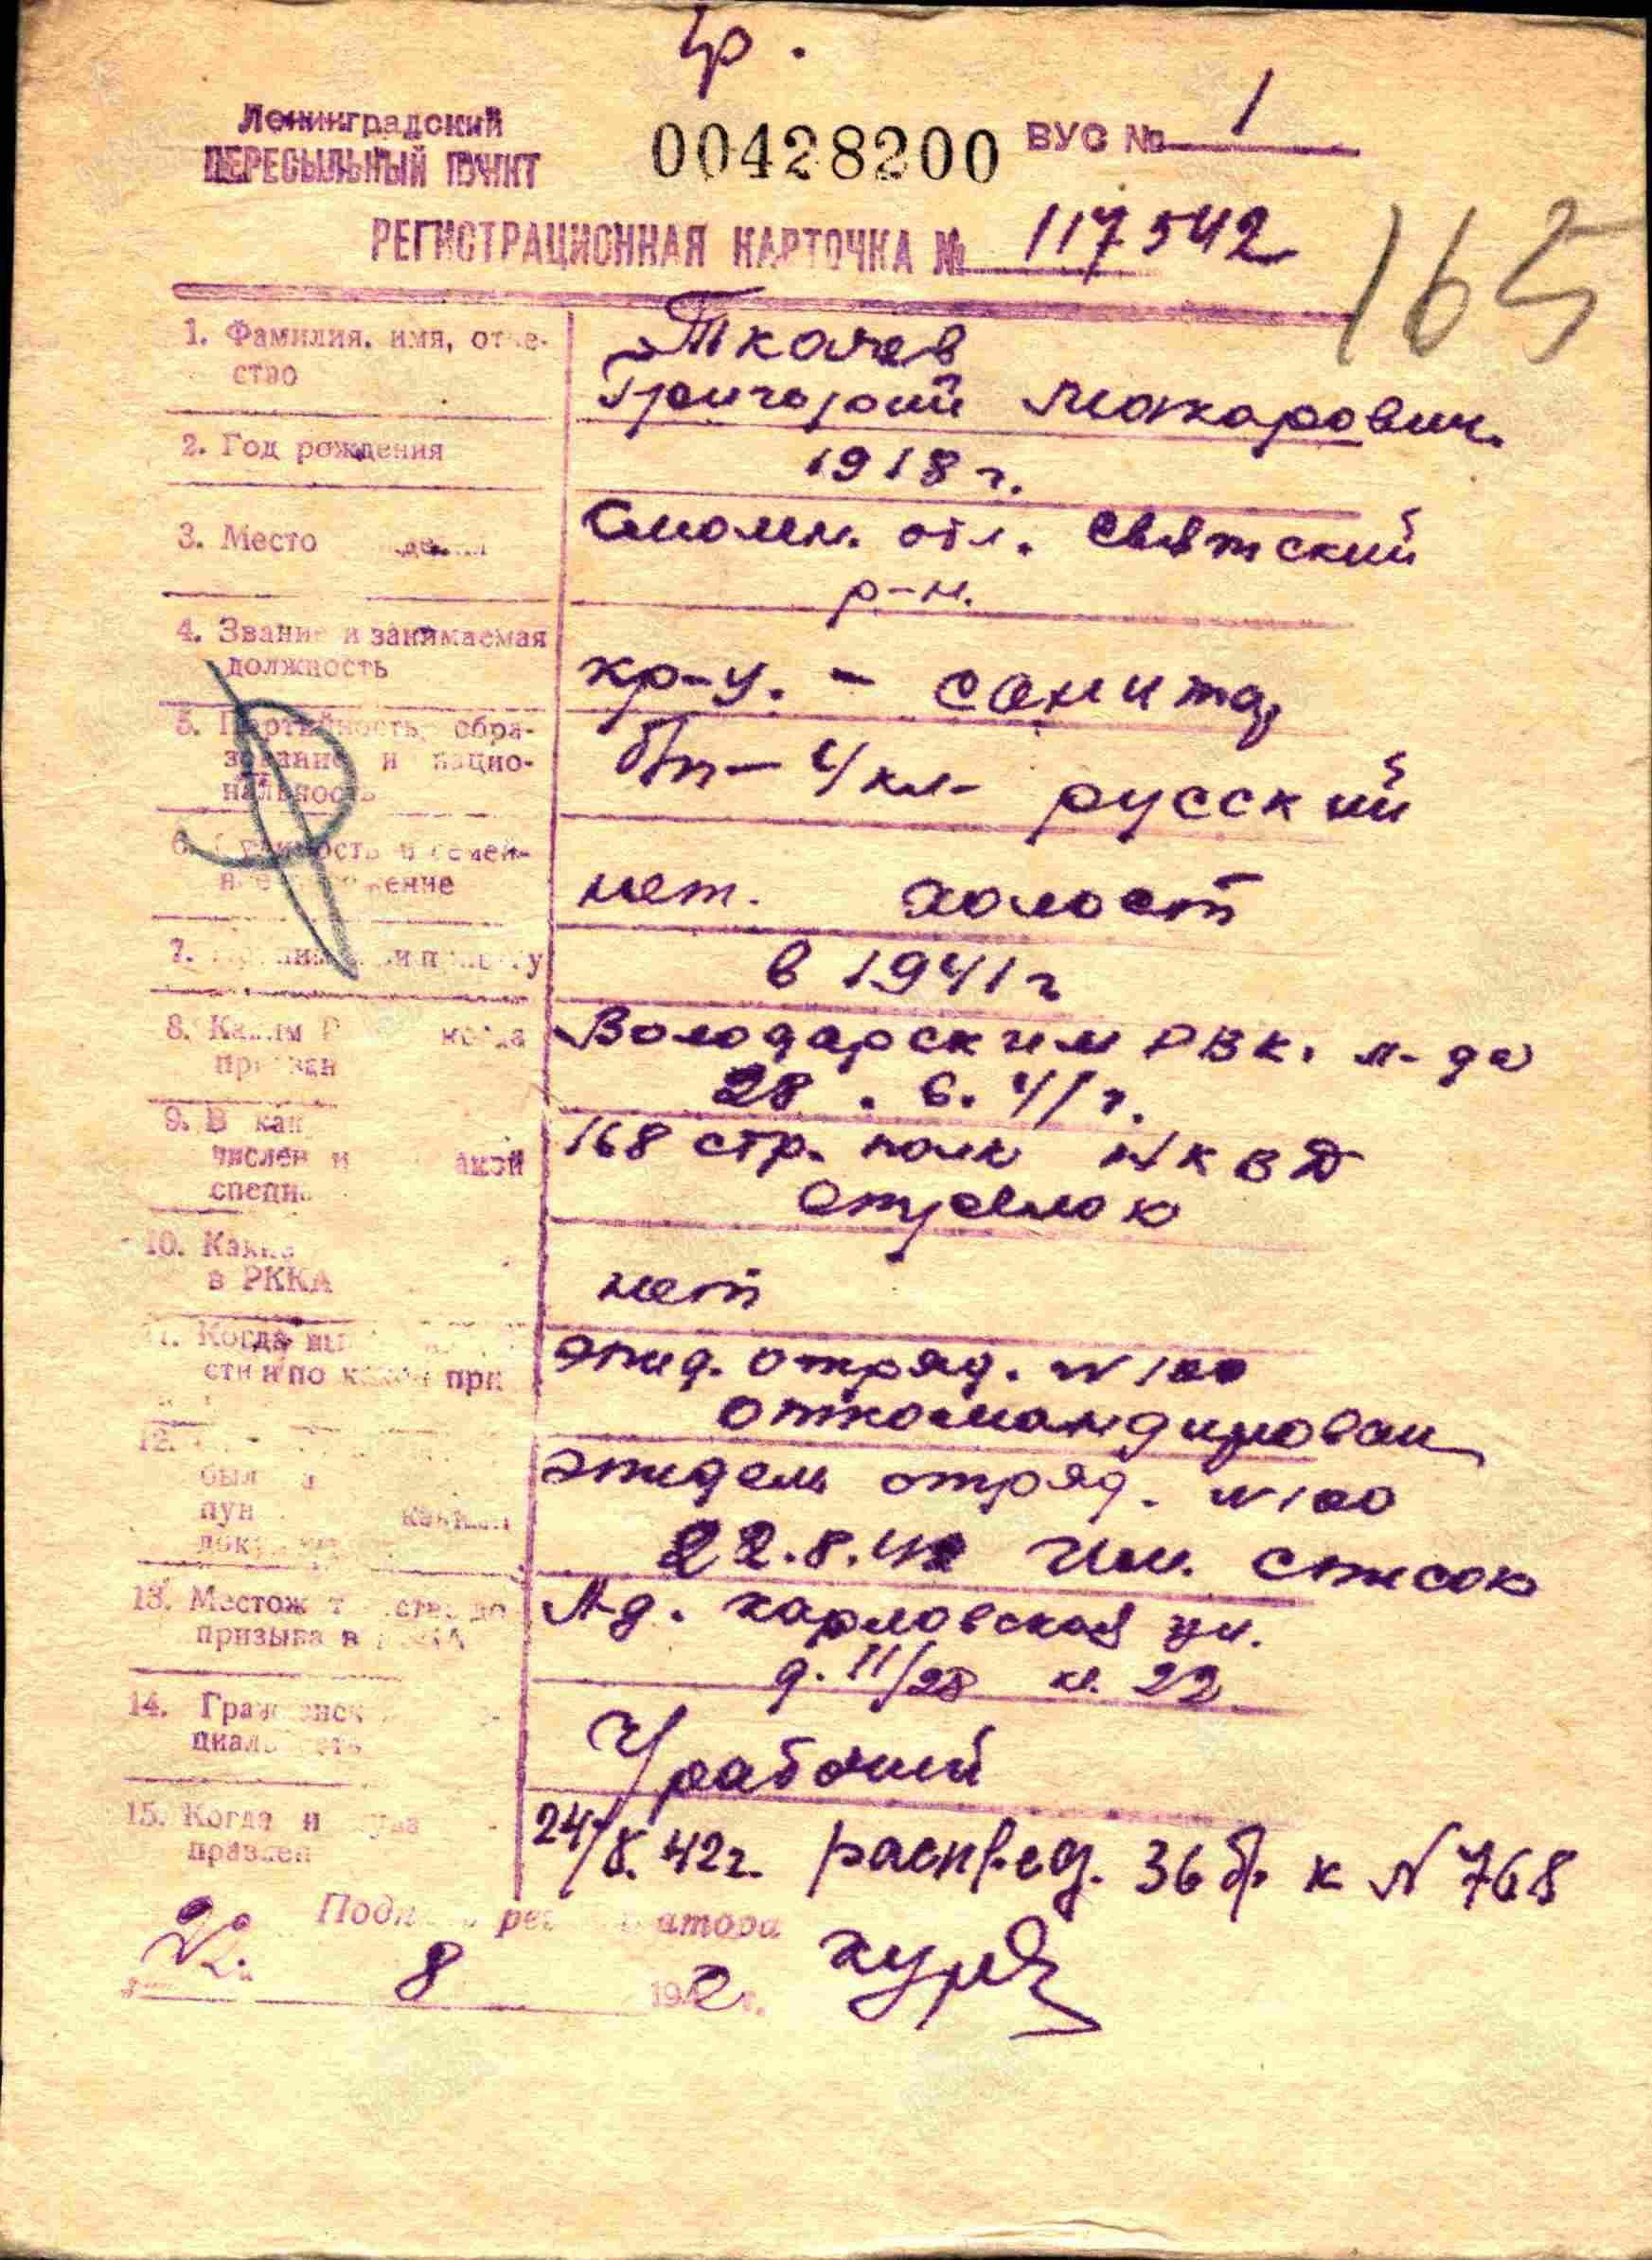 гр.
Ленинградский
ПЕРЕСЫЛЬНЫЙ ПУНКТ
00428200
ВУС № 1
РЕГИСТРАЦИОННАЯ КАРТОЧКА № 117542
165
1. Фамилия, имя, отче-
ство
Ткачев
Григорий Макарович.
2. Год рождения
1918 г.
3. Место
Смолен. обл. Святский
р-н.
4. Звание и занимаемая
должность
кр-ц. - санитар
5. Партийность, обра-
зование и нацио-
нальность
б/п - 4 кл - русский
6. Судимость и семей-
ное положение
нет. холост
7.
в 1941 г
8. Каким когда
призван
Володарским РВК. л-да
28. 6. 41 г.
9. В как
числен и акой
специ
168 стр. полк НКВД
стрелок
10. Каки
в РККА
нет
11. Когда вы
сти и по какой при
эпид. отряд. N 100
откомандирован
12.
был
пун каким
док
эпидем отряд. N 100
22.8.42 им. список
13. Местожительство до
призыва в РККА
Л-д. Карловская ул.
д. 11/28 к. 22
14. Гражданск
циальность
Ч/рабочий
15. Когда и куда
правлен
24/8. 42 г. распред. 36 б. к N 768
Подпись регистратора
22. 8 1942 г.